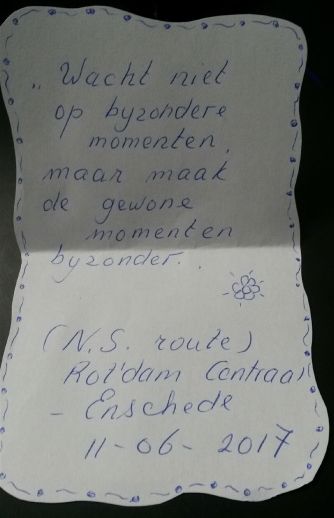 „ Wacht niet
op byzondere
momenten,
maar maak
de gewone
momenten
byzonder..
(N.S. route)
Rot'dam Centraal
- Enschede
11-06-2017